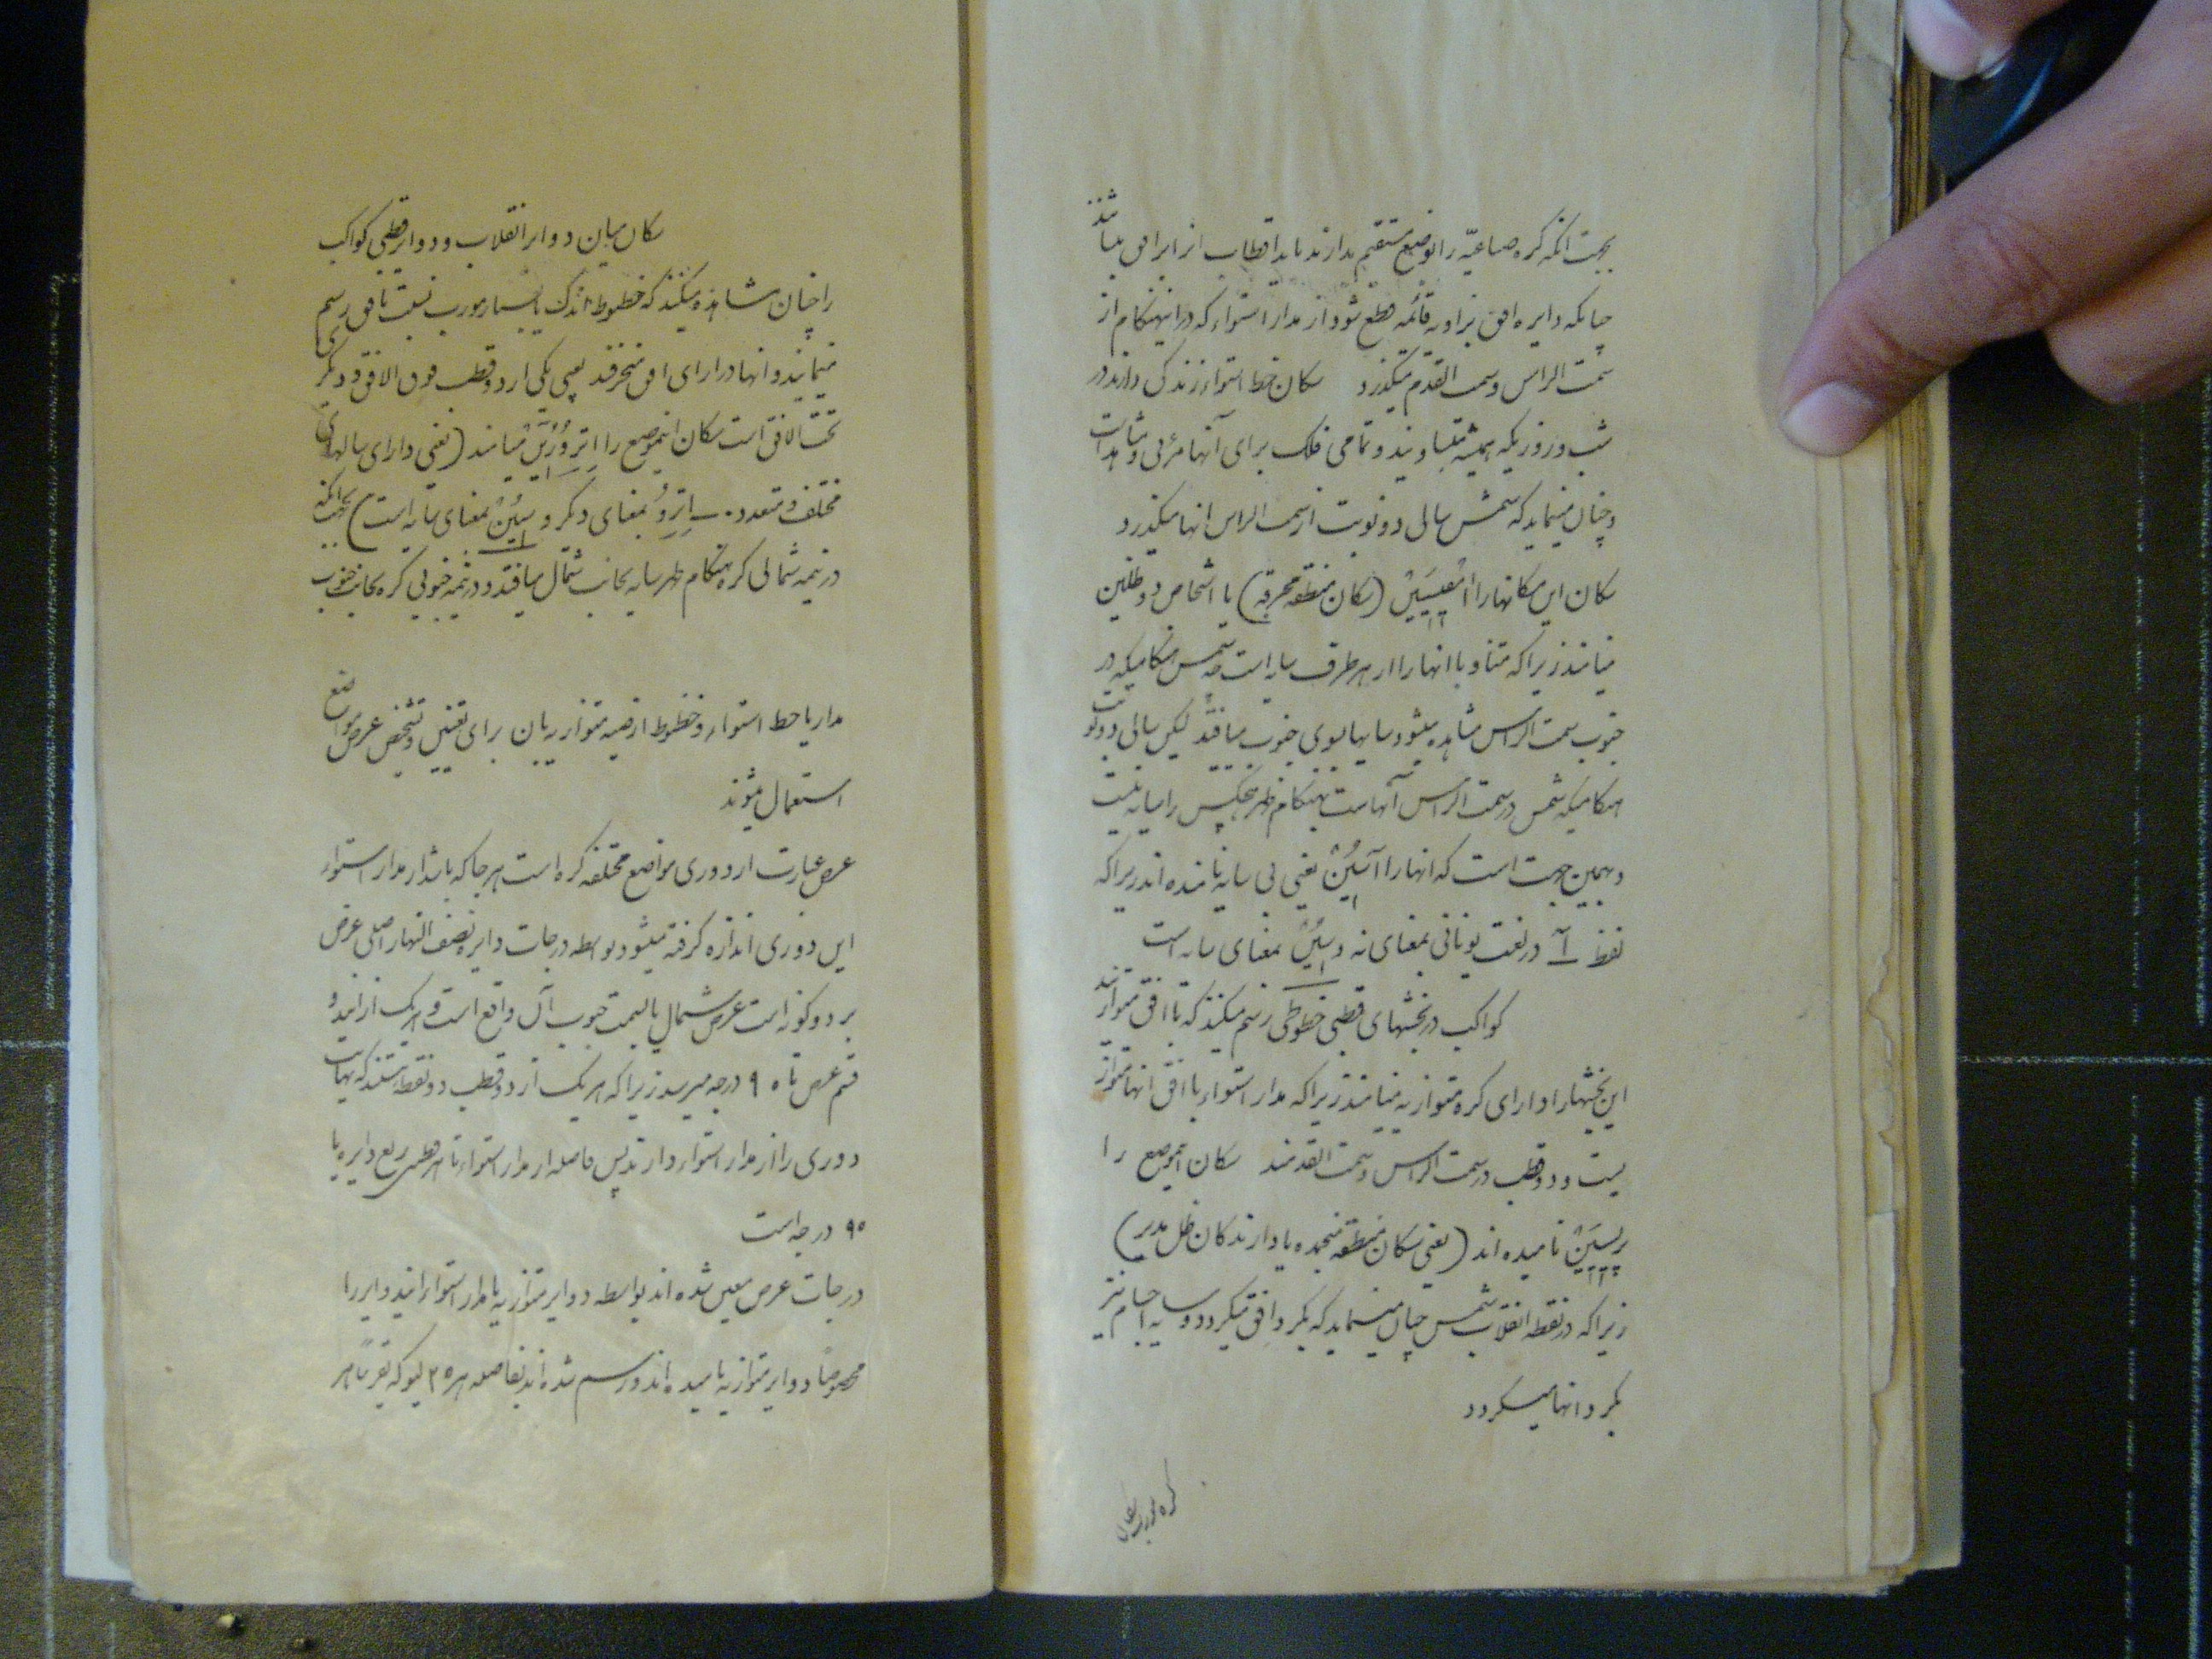 بجهت انکه کره صناعیّه را بوضع مستقیم بدارند باید اقطاب انرا بر افق بنا نهند
چنانکه دایره افق بزاویه قائمه قطع شود از مدار استواء که در اینهنگام از
سمت الراس و سمت القدم میگذرد سکان خط استواء زندگی دارند در
شب و روزیکه همیشه متساویند و تمامی فلک برای آنها مرئی و
و چنان مینماید که شمس سالی دو نوبت از سمت الراس انها میگذرد
سکان این مکانها را (سکان منطقه محرقه) یا اشخاص دو ظلین
مینامند زیرا که متناوبا انها را از هر طرف سایه است چه شمس هنگامیکه در
جنوب سمت الراس مشاهده میشود سایها بسوی جنوب میافتد لیکن سالی دو نوبت
هنگامیکه شمس در سمت الراس آنهاست بهنگام ظهر هیچکس را سایه نیست
و بهمین جهت است که انها را آسیُنْ یعنی بی سایه نامیده اند زیرا که
لفظ آ در لغت یونانی بمعنای نه و سیُنْ بمعنای سایه است
کواکب در بخشهای قطبی خطوطی رسم میکنند که با افق متوازیند
این بخشها را دارای کره متوازیه مینامند زیرا که مدار استواء با افق انها متوازی
نیست و دو قطب در سمت الراس و سمت القدمند سکان اینموضع را
پریسیَنْ نامیده اند (یعنی سکان منطقه منجمده یا دارندکان ظل مدیر)
زیرا که در نقطه انقلاب شمس چنان مینماید که بکرد افق میکردد و سایه اجسام نیز
بکرد انها میکردد
سکان میان دوایر انقلاب و دوایر قطبی کواکب
را چنان مشاهده میکنند که خطوط اندک یا بسیار مورب نسبت بافق رسم
مینمایند و انها دارای افق منحرفند یعنی یکی از دو قطب فوق الافق و دیکری
تحت الافق است سکان اینموضع را اتروُسیَنْ مینامند (یعنی دارای سایهای
مختلف و متعدد ـ اِتِروُ بمعنای دیگر و سیُنْ بمعنای سایه است) بجهت انکه
در نیمه شمالی کره هنکام ظهر سایه بجانب شمال میافتد و در نیمه جنوبی کره بجانب جنوب
مدار یا خط استواء و خطوط ارضیه متوازیه بان برای تعیین و تشخیص عرض مواضع
استعمال میشوند
عرض عبارت از دوری مواضع مختلفه کره است هر جا که باشد از مدار استواء
این دوری اندازه کرفته میشود بواسطه درجات دایره نصف النهار اصلی عرض
بر دو کونه است عرض شمالی یا بسمت جنوب آن واقع است و هر یک از ایندو
قسم عرض تا ۹۰ درجه میرسد زیرا که هر یک از دو قطب دو نقطه هستند که نهایت
دوری را از مدار استواء دارند پس فاصله از مدار استواء تا هر قطبی ربع دایره یا
۹۰ درجه است
درجات عرض معین شده اند بواسطه دوایر متوازیه با مدار استواء ایندوایر را
مخصوصاً دوایر متوازیه نامیده اند و رسم شده اند بفاصله هر ۲۵ لیو که تقریباً هر